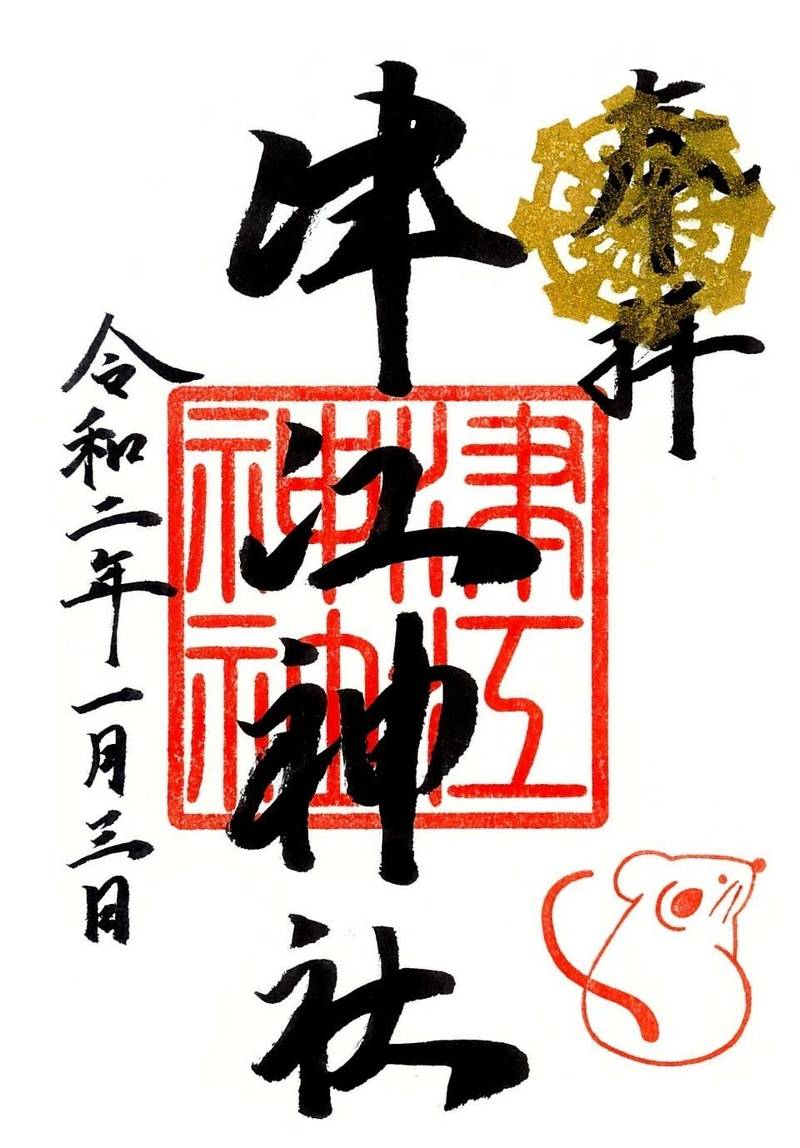 奉拝
津江神社
津江神社
令和二年一月三日